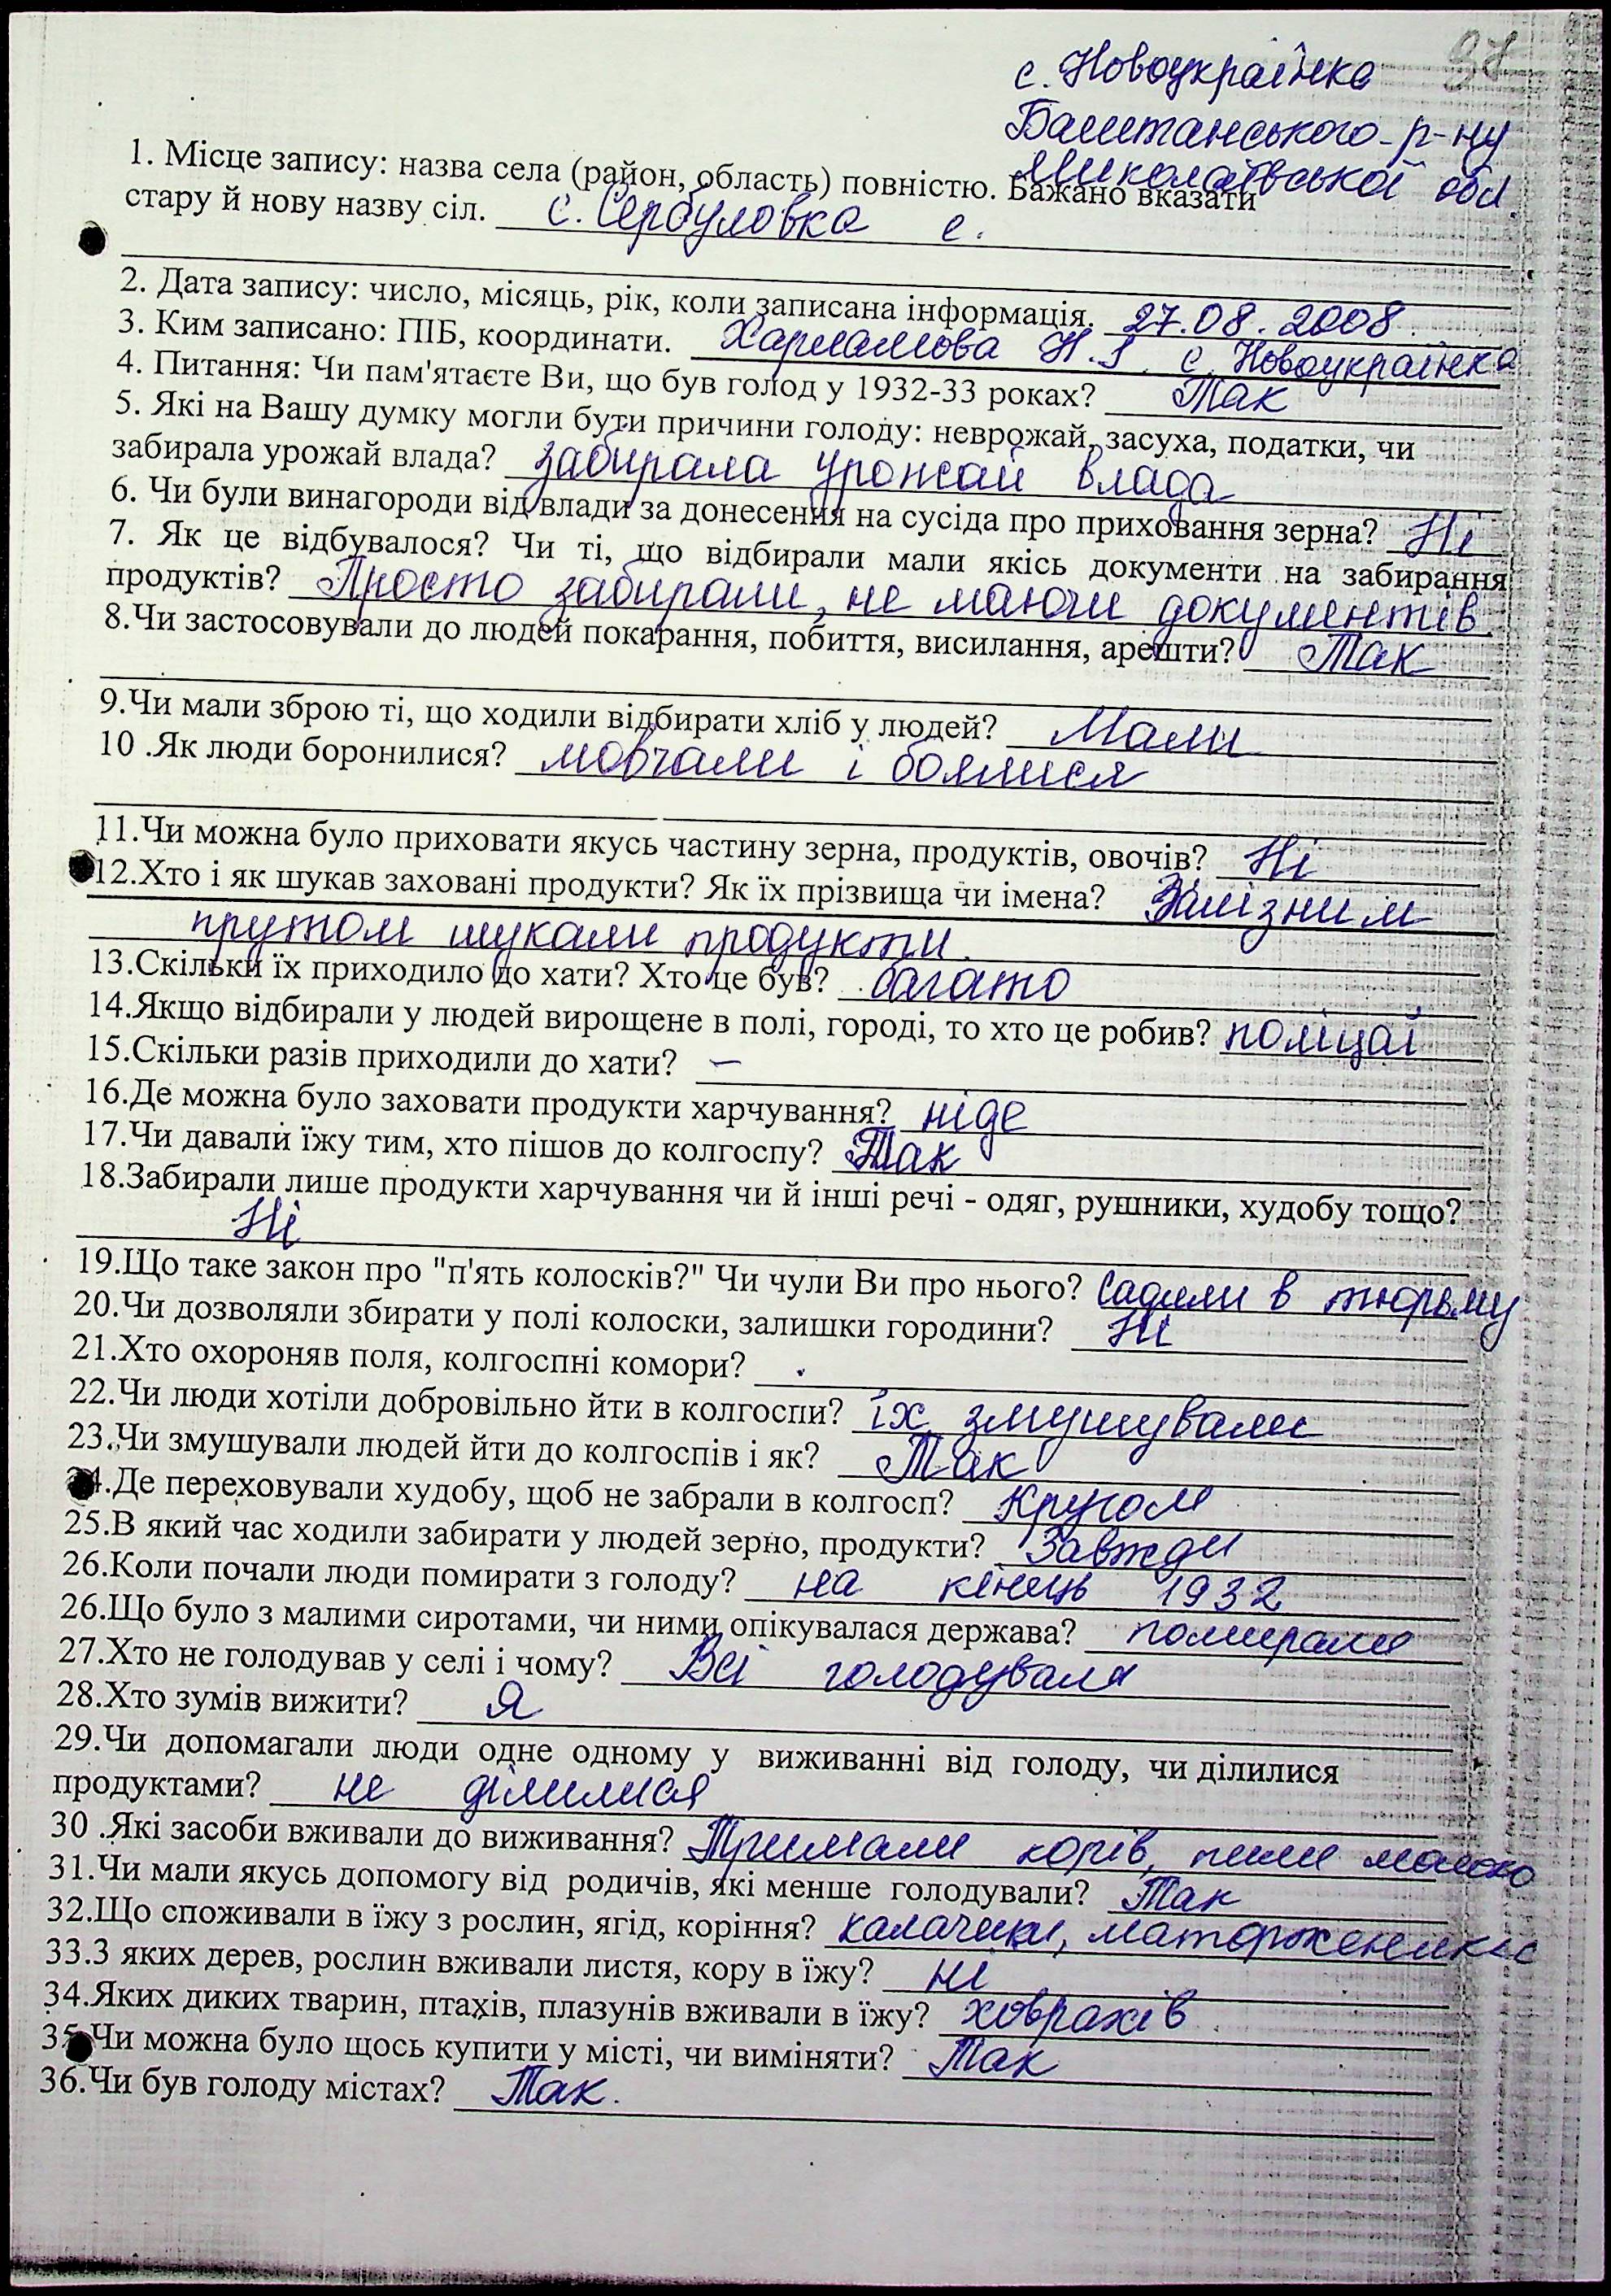 с. Новоукраїнка
Баштанського р-ну
Миколаївської обл.
1. Місце запису: назва села (район, область) повністю. Бажано вказати
стару й нову назву сіл. с. Сербуловка с.
2. Дата запису: число, місяць, рік, коли записана інформація. 27.08.2008.
3. Ким записано: ПІБ, координати. Харламова Н.І. с. Новоукраїнка
4. Питання: Чи пам'ятаєте Ви, що був голод у 1932-33 роках? Так
5. Які на Вашу думку могли бути причини голоду: неврожай, засуха, податки, чи
забирала урожай влада? забирала урожай влада
6. Чи були винагороди від влади за донесення на сусіда про приховання зерна? Ні
7. Як це відбувалося? Чи ті, що відбирали мали якісь документи на забирання
продуктів? Просто забирали, не маючи документів.
8.Чи застосовували до людей покарання, побиття, висилання, арешти? Так
9.Чи мали зброю ті, що ходили відбирати хліб у людей? Мали
10 .Як люди боронилися? мовчали і боялися
11.Чи можна було приховати якусь частину зерна, продуктів, овочів? Ні
12.Хто і як шукав заховані продукти? Як їх прізвища чи імена? Залізним
прутом шукали продукти.
13.Скільки їх приходило до хати? Хто це був? багато
14.Якщо відбирали у людей вирощене в полі, городі, то хто це робив? поліцаї
15.Скільки разів приходили до хати? –
16.Де можна було заховати продукти харчування? ніде
17.Чи давали їжу тим, хто пішов до колгоспу? Так
18.Забирали лише продукти харчування чи й інші речі - одяг, рушники, худобу тощо?
Ні
19.Що таке закон про "п'ять колосків?" Чи чули Ви про нього? Садили в тюрьму
20.Чи дозволяли збирати у полі колоски, залишки городини? Ні
21.Хто охороняв поля, колгоспні комори?
22.Чи люди хотіли добровільно йти в колгоспи? їх змушували
23.Чи змушували людей йти до колгоспів і як? Так
24.Де переховували худобу, щоб не забрали в колгосп? Кругом
25.В який час ходили забирати у людей зерно, продукти? Завжди
26.Коли почали люди помирати з голоду? на кінець 1932
26.Що було з малими сиротами, чи ними опікувалася держава? помирали
27.Хто не голодував у селі і чому? Всі голодували
28.Хто зумів вижити? Я
29.Чи допомагали люди одне одному у виживанні від голоду, чи ділилися
продуктами? не ділилися
30 .Які засоби вживали до виживання? Тримали корів, пили молоко
31.Чи мали якусь допомогу від родичів, які менше голодували? Так
32.Що споживали в їжу з рослин, ягід, коріння? калачики,
33.З яких дерев, рослин вживали листя, кору в їжу? ні
34.Яких диких тварин, птахів, плазунів вживали в їжу? ховрахів.
35.Чи можна було щось купити у місті, чи виміняти? Так
36.Чи був голоду містах? Так.